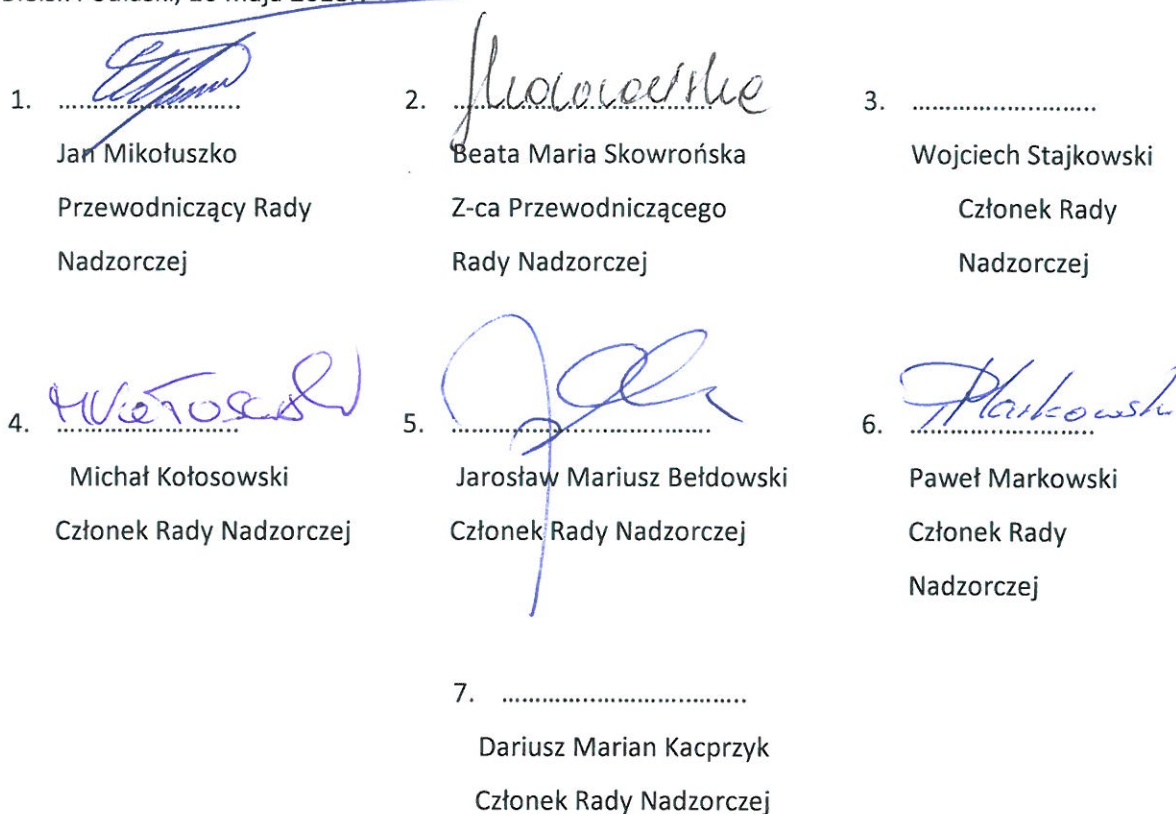 1. ........................
Jan Mikołuszko
Przewodniczący Rady
Nadzorczej
2. ..................................
Skowrońska
Beata Maria Skowrońska
Z-ca Przewodniczącego
Rady Nadzorczej
3. ........................
Wojciech Stajkowski
Członek Rady
Nadzorczej
4. ........................
Michał Kołosowski
Członek Rady Nadzorczej
5. ..................................
Jarosław Mariusz Bełdowski
Członek Rady Nadzorczej
6. ........................
PMarkowski
Paweł Markowski
Członek Rady
Nadzorczej
7. ................................
Dariusz Marian Kacprzyk
Członek Rady Nadzorczej